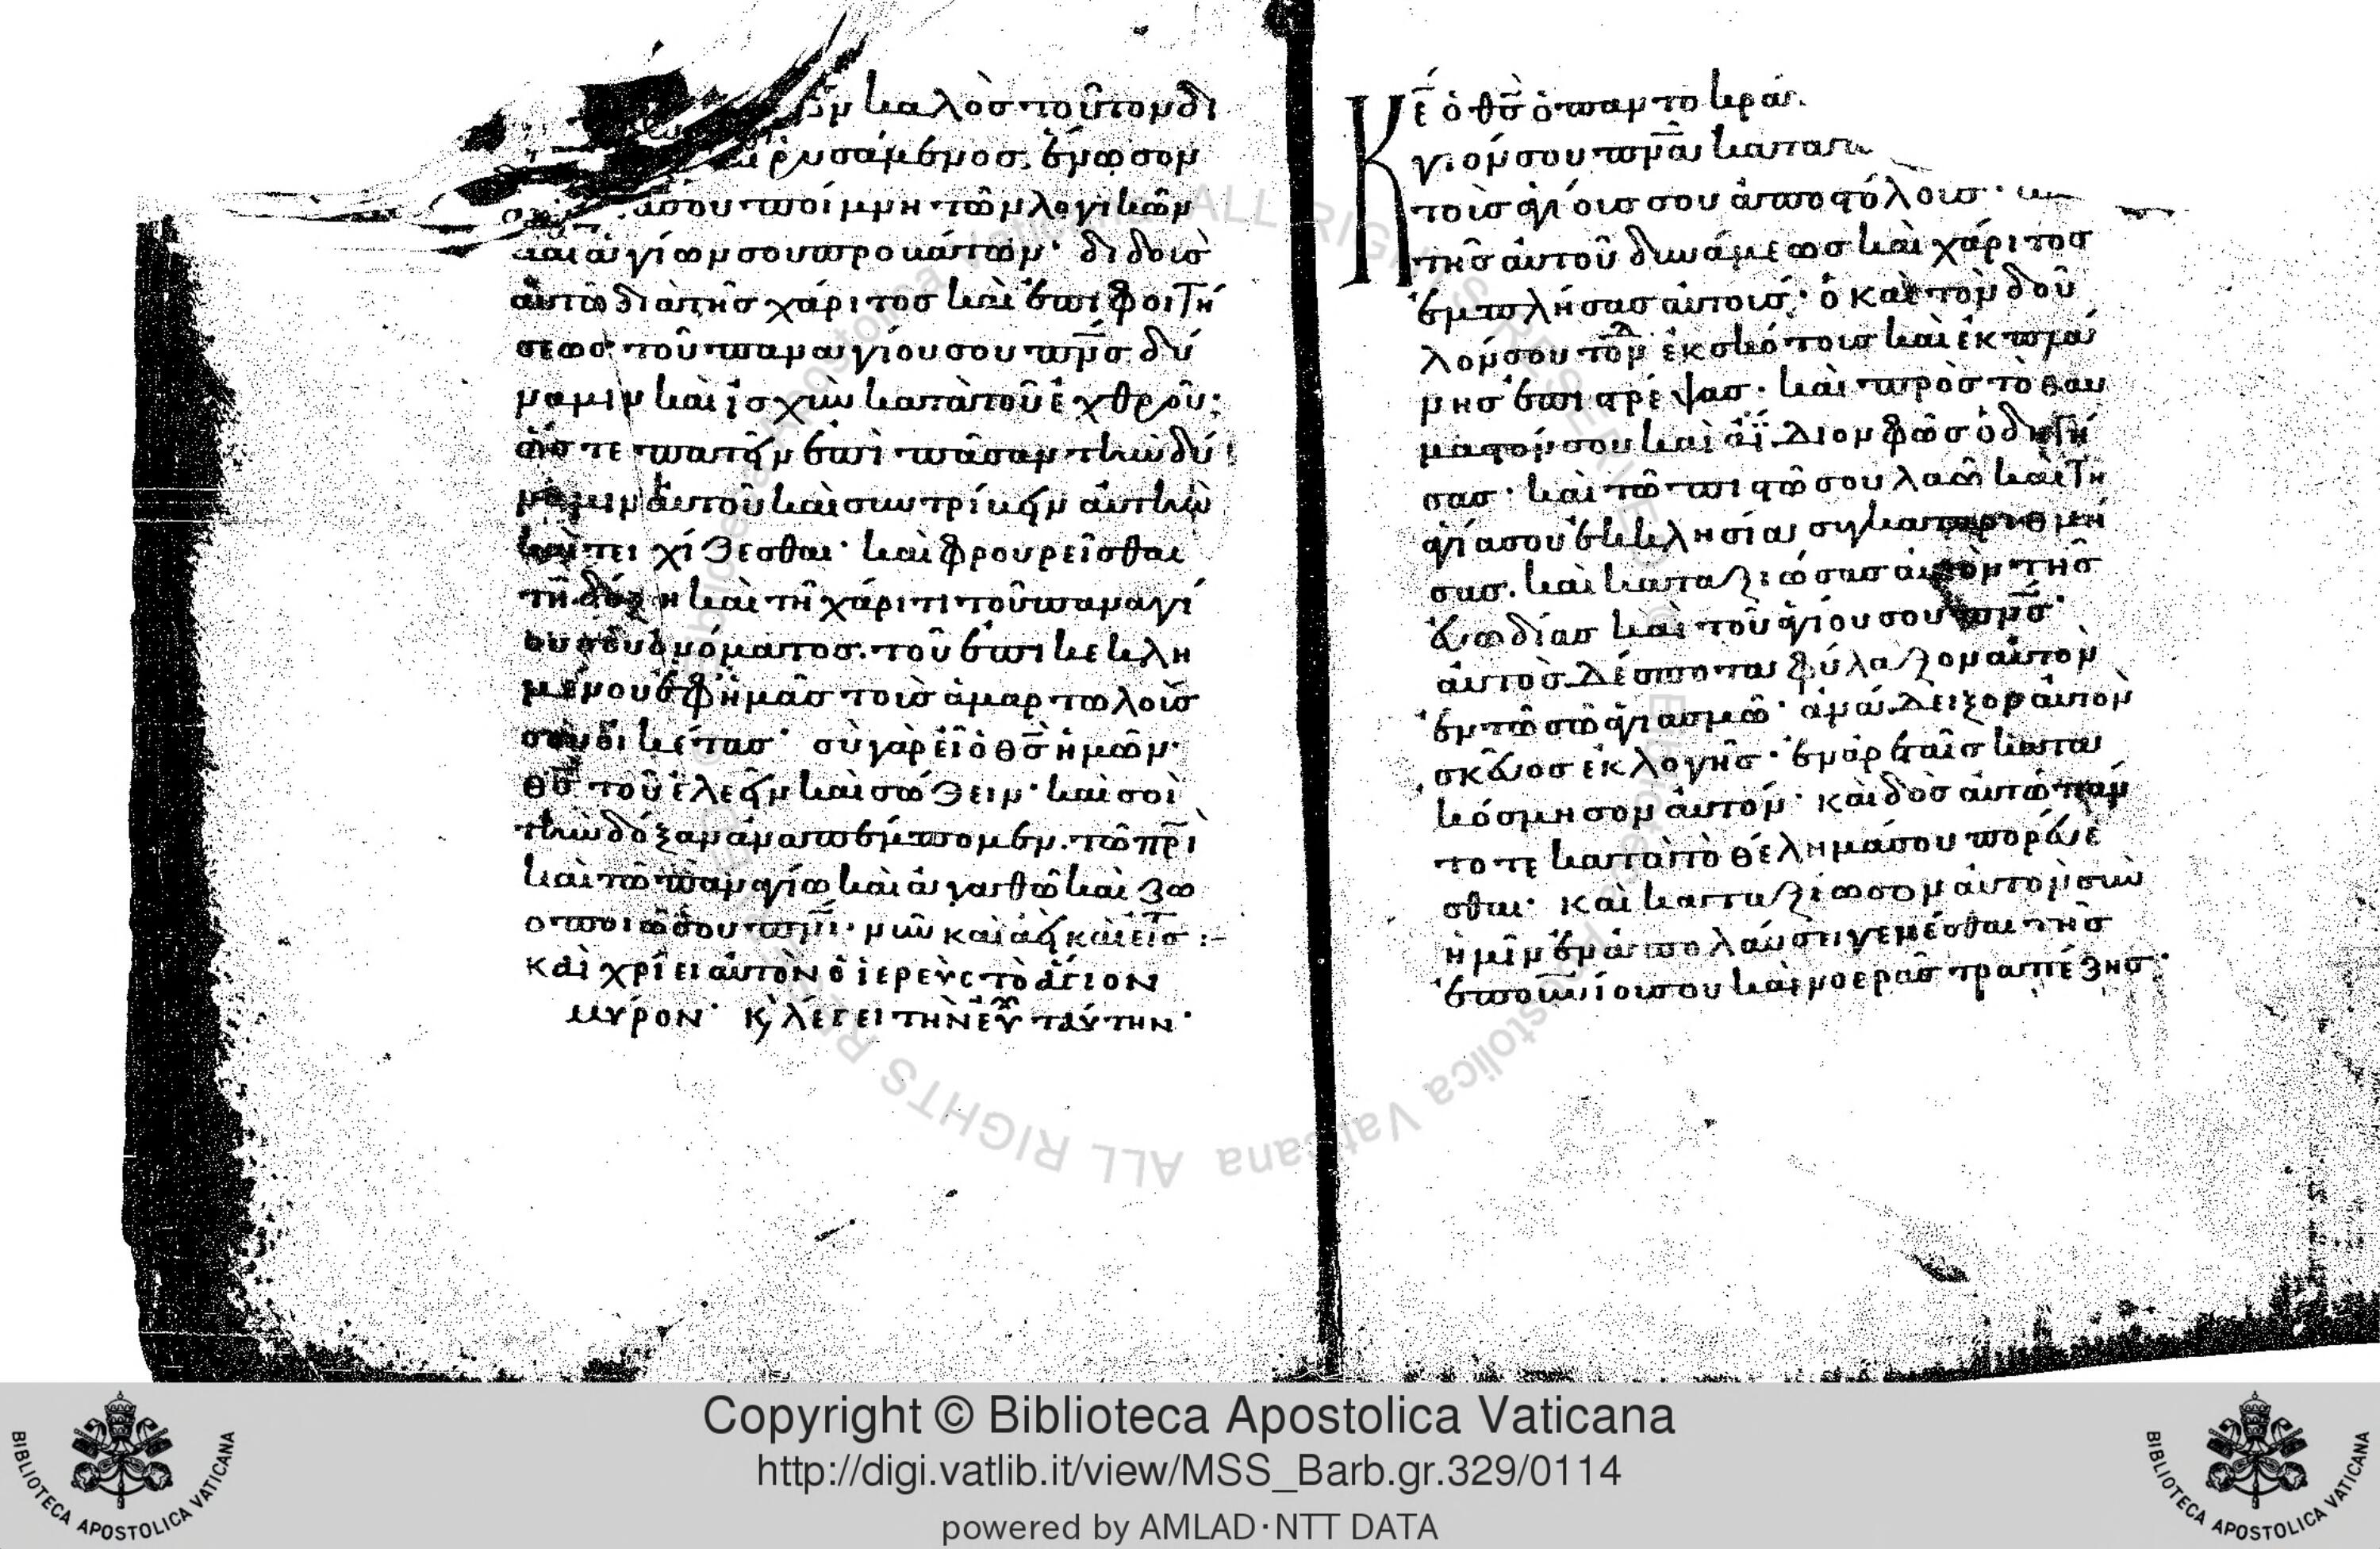 καλὸσ τοῦτον δι
ρυσάμενοσ. ἕνωσον
σου ποίμνη τῶν λογικῶν
καὶ ἁγίων σου προβάτων· διδοὺσ
ἀυτῶ διὰ τῆσ χάριτοσ καὶ ἐπιφοιτή
σεωσ τοῦ παναγίου σου πν̅σ δύ
ναμιν καὶ ἰσχὺν κατὰ τοῦ ἐχθροῦ·
ὥστε πατεῖν ἐπὶ πᾶσαν τὴν δύ
ναμιν ἀυτοῦ καὶ συντρίβειν ἀυτὴν
καὶ τειχίζεσθαι· καὶ φρουρεῖσθαι
τῆ δόξη καὶ τῆ χάριτι τοῦ παναγί
ου σου ὀνόματοσ. τοῦ ἐπικεκλη
μένου ἐφ ἡμᾶσ τοὺσ ἁμαρτωλοὺσ
σου οἰκέτασ· σὺ γὰρ εἶ ὁ θσ̅ ἡμῶν·
θσ̅ τοῦ ἐλεεῖν καὶ σώζειν· καὶ σοὶ
τὴν δόξαν ἀναπέμπομεν. τῶ πρι̅
καὶ τῶ παναγίω καὶ ἀγαθῶ καὶ ζω
οποιῶ σου πνι̅· νῦν καὶ ἀεὶ καὶ εἰσ :-
καὶ χρίει ἀυτὸν ὁ ἱερεὺς τὸ ἅγιον
μύρον· κ̀ λέγει τὴν ἐυχ ταύτην·
Κε̅ ὁ θσ̅ ὁ παντοκρά
γιόν σου πνα̅
τοῖσ ἁγίοισ σου ἀποστόλοισ·
τῆσ ἀυτοῦ δυνάμεωσ καὶ χάριτοσ
ἐμπλήσασ ἀυτούσ· ὁ καὶ τὸν δοῦ
λόν σου τόνδ ἐκ σκότουσ καὶ ἐκ πλά
νησ ἐπιστρέψασ· καὶ πρὸσ τὸ θαυ
μαστόν σου καὶ ἀΐδιον φῶσ ὁδηγή
σασ· καὶ τῶ πιστῶ σου λαῶ καὶ τῆ
ἁγία σου ἐκκλησία συγκαταριθμή
σασ. καὶ καταξιώσασ ἀυτὸν τῆσ
ἐυωδίασ καὶ τοῦ ἁγίου σου πνσ̅·
ἀυτὸσ δέσποτα φύλαξον ἀυτὸν
ἐν τῶ σῶ ἁγιασμῶ· ἀνάδειξον ἀυτὸν
σκεῦοσ ἐκλογῆσ· ἐν ἀρεταῖσ κατα
κόσμησον ἀυτόν· καὶ δὸσ ἀυτῶ πάν
τοτε κατὰ τὸ θέλημά σου πορεύε
σθαι· καὶ καταξίωσον ἀυτὸν σὺν
ἡμῖν ἐν ἀπολαύσει γενέσθαι τῆσ
ἐπουνίου σου καὶ νοερᾶσ τραπέζησ·
Copyright © Biblioteca Apostolica Vaticana
http://digi.vatlib.it/view/MSS_Barb.gr.329/0114
powered by AMLAD·NTT DATA
BIBLIOTECA APOSTOLICA VATICANA
BIBLIOTECA APOSTOLICA VATICANA